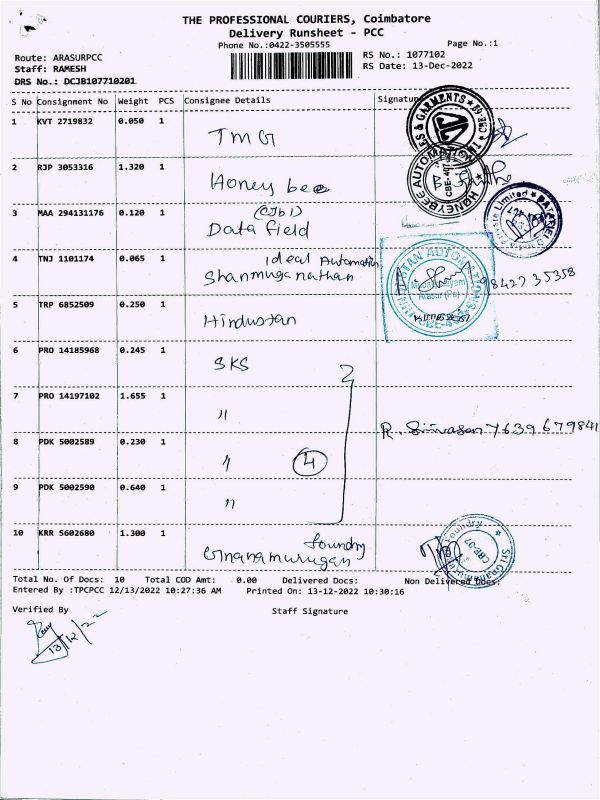 THE PROFESSIONAL COURIERS, Coimbatore
Delivery Runsheet - PCC
Phone No.:0422-3505555
Page No.:1
Route: ARASURPCC
RS No.: 1077102
Staff: RAMESH
RS Date: 13-Dec-2022
DRS No.: DCJB107710201
S No Consignment No Weight PCS Consignee Details Signature
1 KVT 2719832 0.050 1 TMG
2 RJP 3053316 1.320 1 Honey bee
3 MAA 294131176 0.120 1 (CJb1) Data field
4 TNJ 1101174 0.065 1 Ideal Automation
Shanmuganathan 98427 35358
5 TRP 6852509 0.250 1 Hindustan
6 PRO 14185968 0.245 1 SKS
7 PRO 14197102 1.655 1 " R. Srinivasan 7639679841
8 PDK 5002589 0.230 1 " 4
9 PDK 5002590 0.640 1 "
10 KRR 5602680 1.300 1 Gnanamurugan foundry
Total No. Of Docs: 10 Total COD Amt: 0.00 Delivered Docs: Non Delivered Docs:
Entered By :TPCPCC 12/13/2022 10:27:36 AM Printed On: 13-12-2022 10:30:16
Verified By Staff Signature
13/12/22